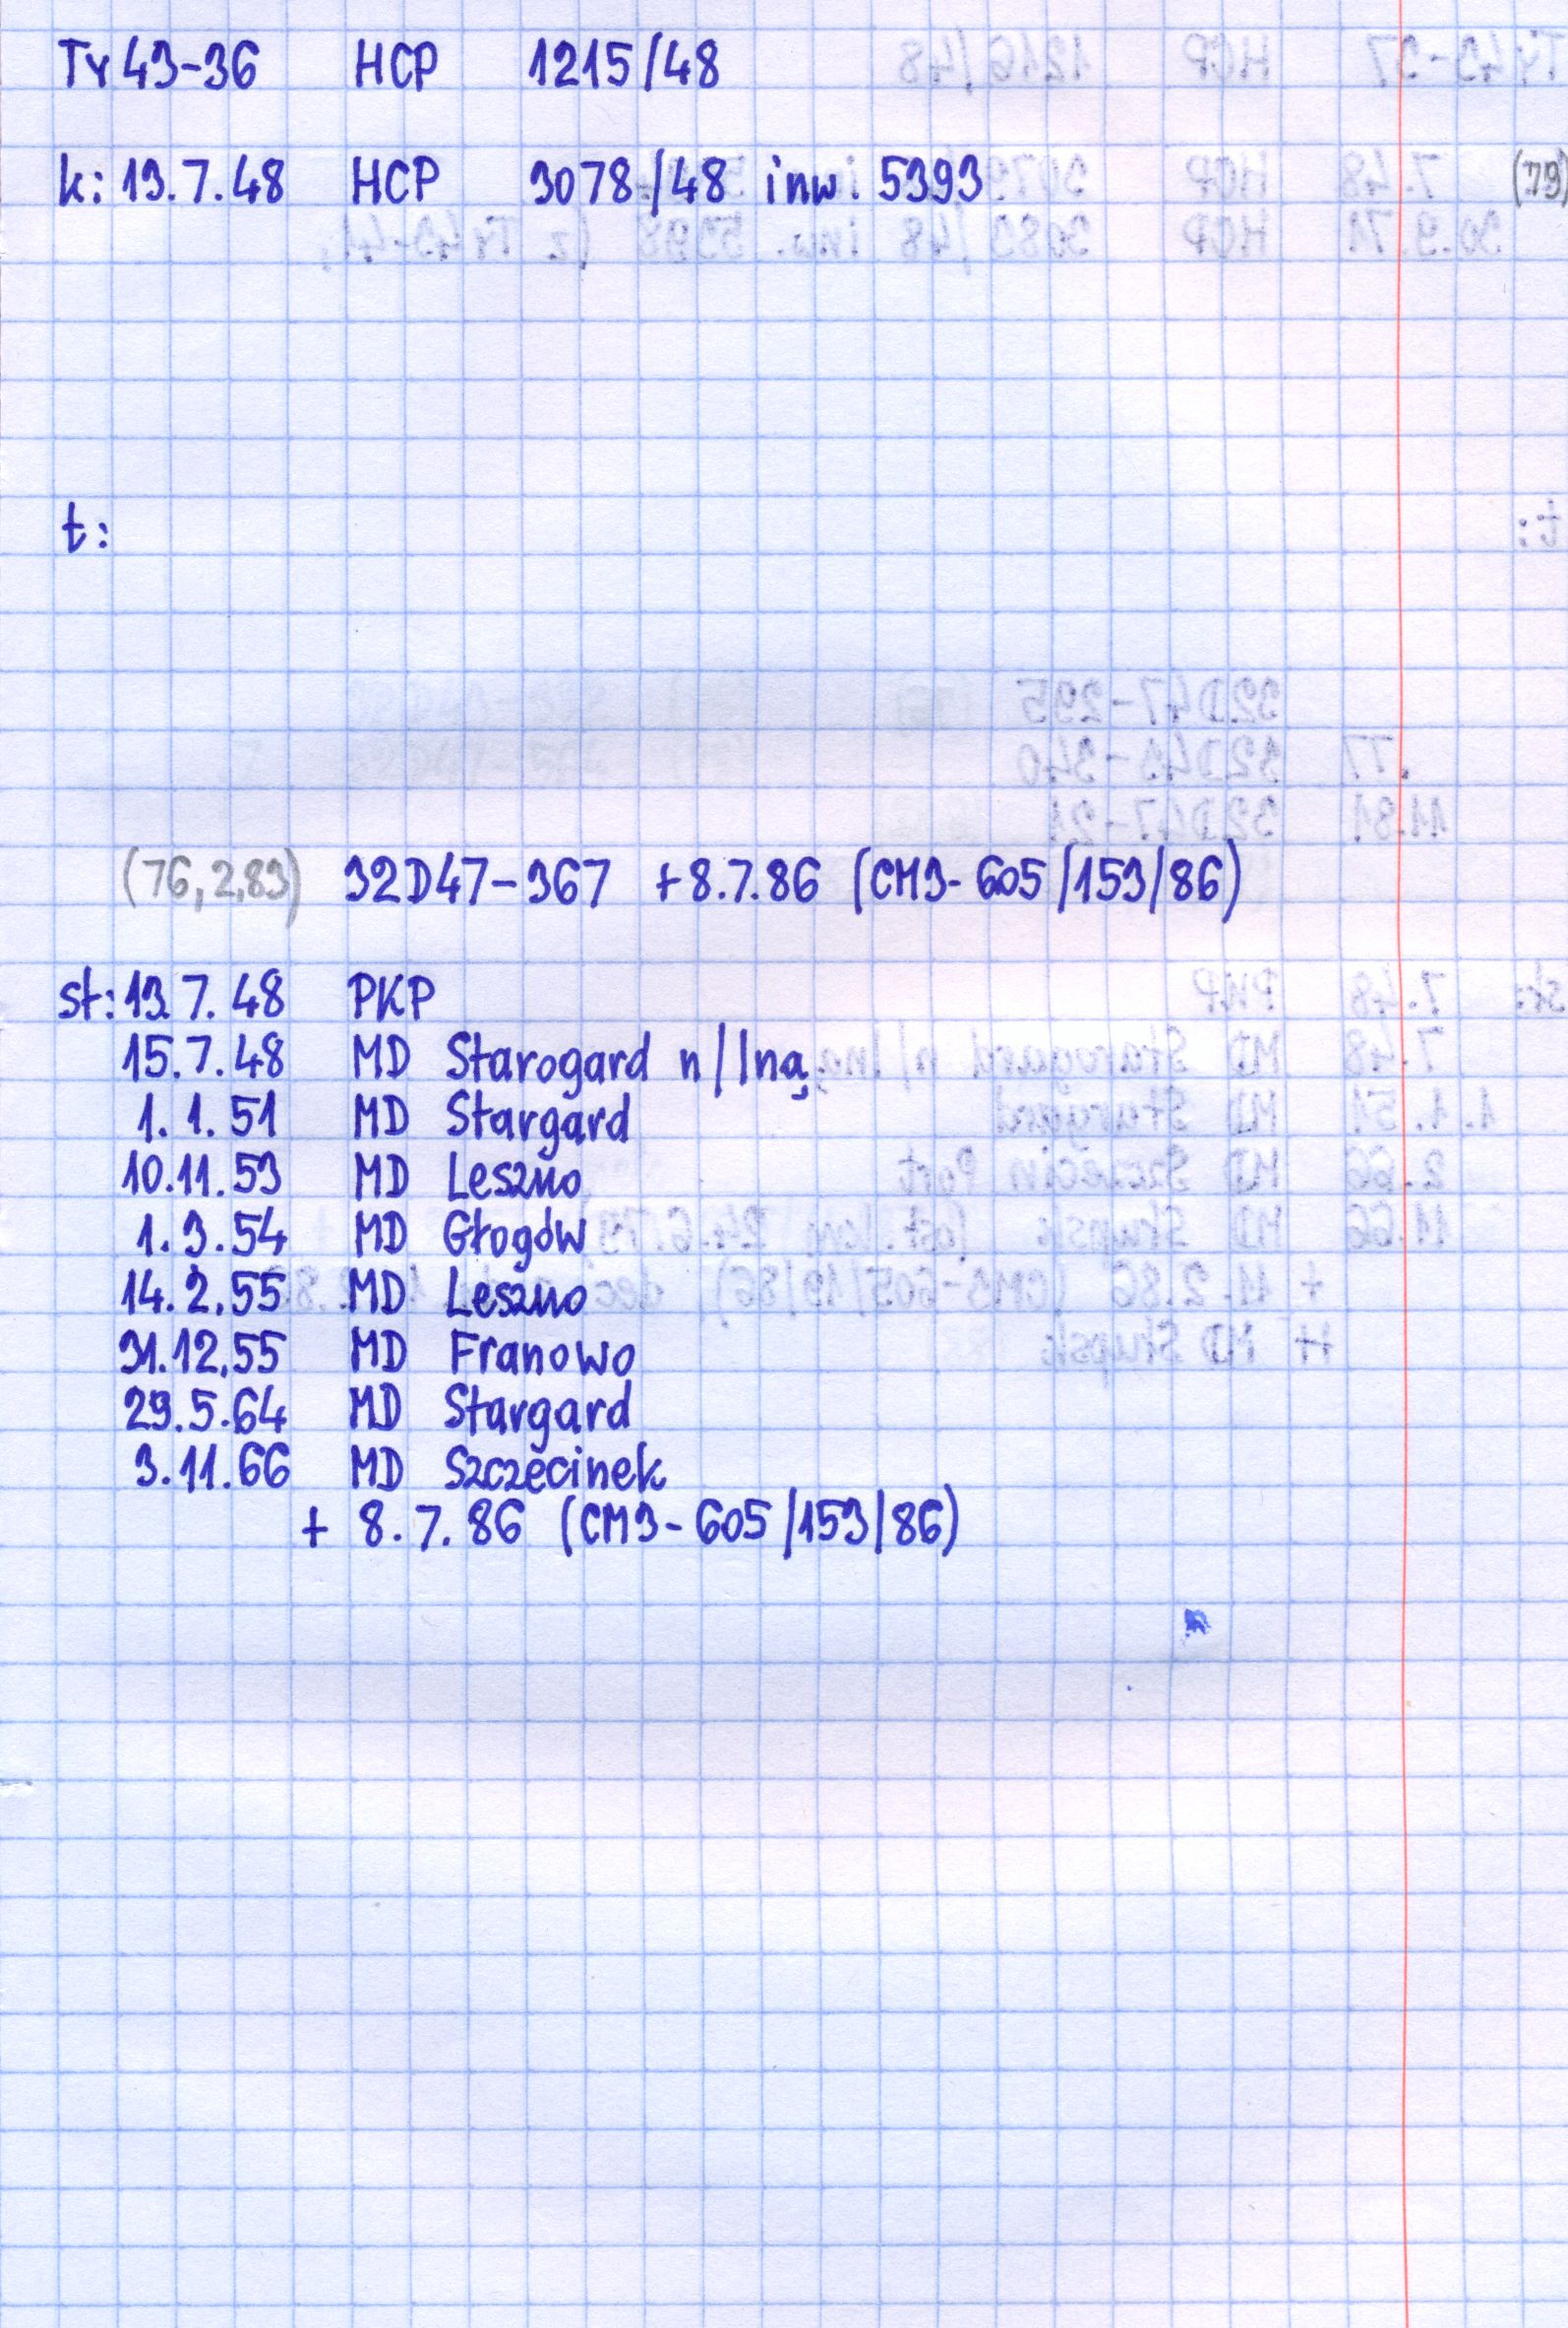 Ty43-36 HCP 1215/48
k: 13.7.48 HCP 3078/48 inw. 5393
t:
(76, 2.83) 32D47-367 +8.7.86 (CM3-605/153/86)
st: 13.7.48 PKP
15.7.48 MD Starogard n/Iną
1.1.51 MD Stargard
10.11.53 MD Leszno
1.3.54 MD Głogów
14.2.55 MD Leszno
31.12.55 MD Franowo
29.5.64 MD Stargard
3.11.66 MD Szczecinek
+ 8.7.86 (CM3-605/153/86)